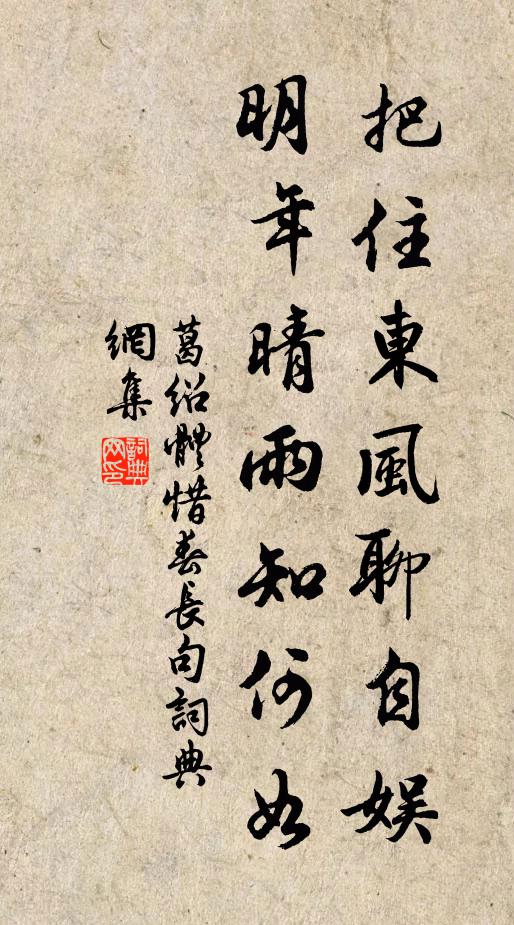 把住東風聊自娱
明年晴雨知何如
葛绍體惜春長句詞典
網集
詞典网印